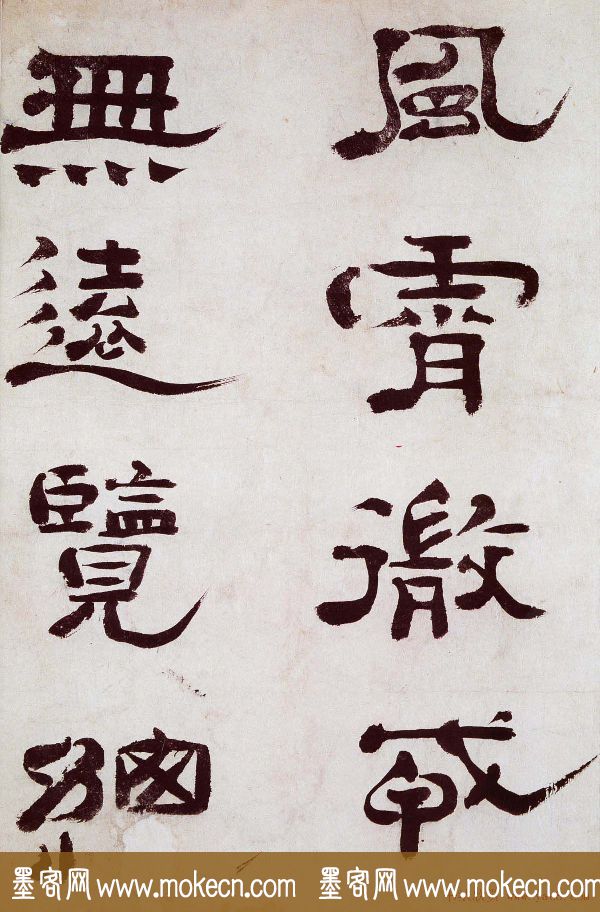 風霄徹
無遠覽
墨客网 www.mokecn.com 墨客网 www.mokecn.com